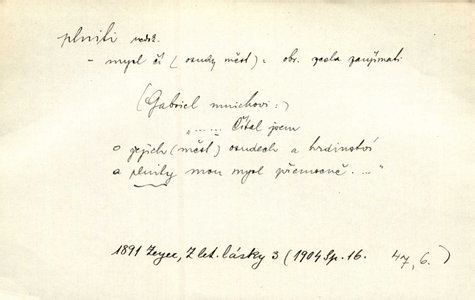 plniti nedok.
– mysl čí (osudy měst): obr. zcela zaujímati
(Gabriel mnichovi:)
„...... Čítal jsem
o jejich (měst) osudech a hrdinství
a plnily mou mysl přemocně. ..."
1891 Zeyer, Z let. lásky 3 (1904 Sp. 16. 47, 6.)